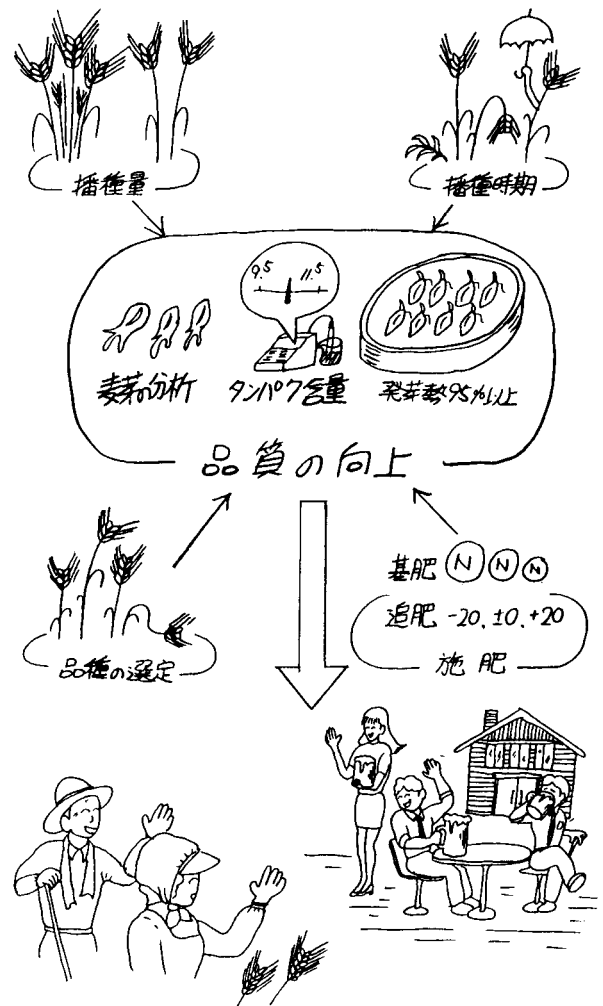 播種量
播種時期
9.5 11.5
麦芽の分析
タンパク含量
発芽勢95%以上
品質の向上
基肥 N N N
追肥 -20, ±0, +20
施肥
品種の選定